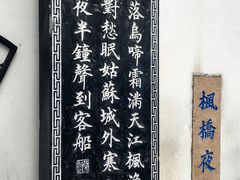 楓橋夜
落烏啼霜滿天江楓漁
對愁眠姑蘇城外寒
夜半鐘聲到客船